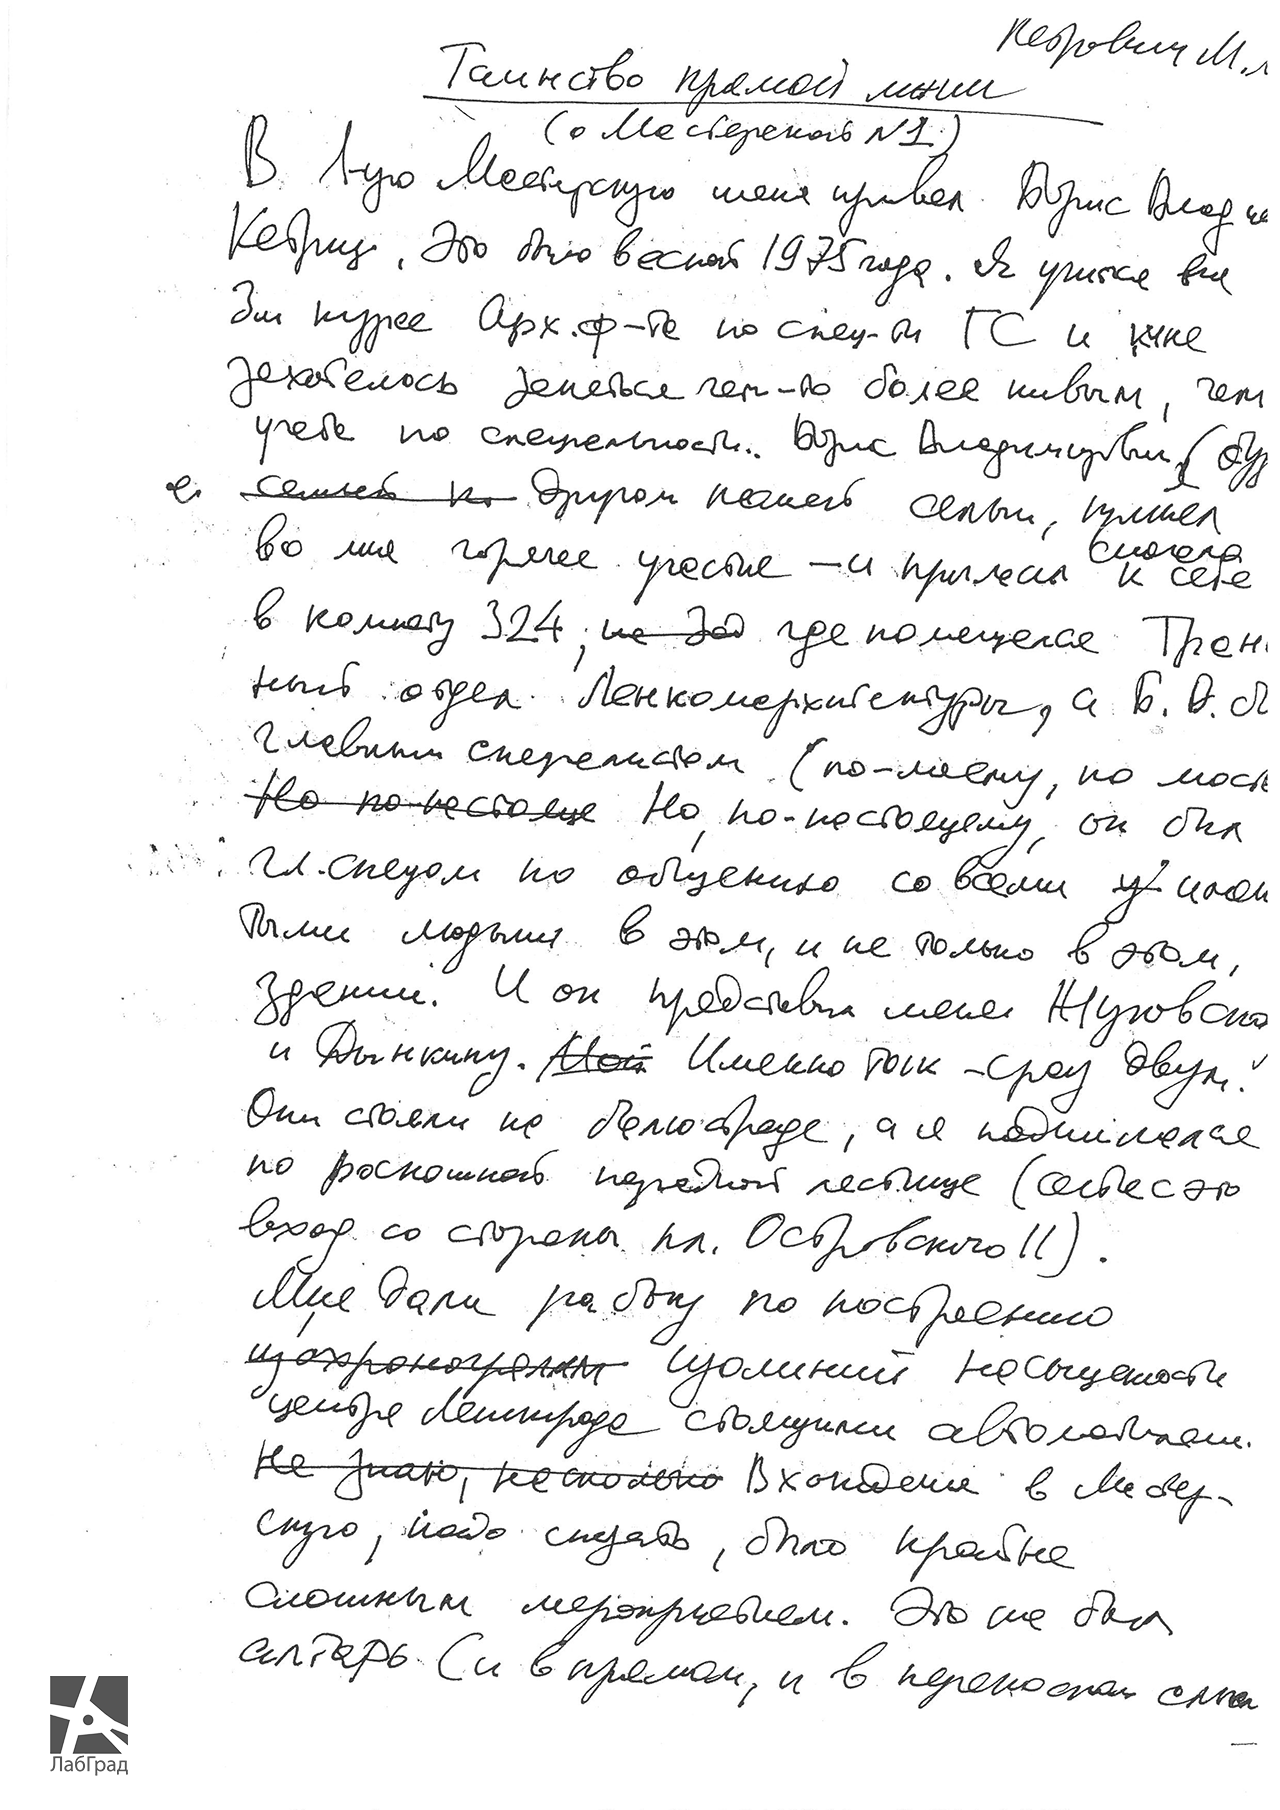 Петрович М.
Таинство прямой линии
(о Мастерской №1)
В 1-ую Мастерскую меня привел Борис Влад
Это было весной 1975 года. Я учился
курсе Арх.ф-та по спец-ти ГС и мне
захотелось заняться чем-то более живым, чем
учеба по специальности. Борис Владимирович, (
семьей другом нашей семьи, принял
во мне горячее участие – и пригласил сначала к себе
в комнату 324, где помещался Тран
ный отдел Ленкомархитектуры, а Б. В. б
главным специалистом (по-моему, по мост
Но по-настояще Но, по-настоящему, он был
гл. спецом по общению со всеми имен
тыми людьми в этом, и не только в этом,
здании. И он представил меня Жуковско
и Дынкину. Мой Именно так – сразу двум!
Они стояли на балюстраде, а я поднимался
по роскошной парадной лестнице (сейчас это
вход со стороны пл. Островского 11).
Мне дали работу по построению
изохронограмм изолиний насыщенности
центра Ленинграда стоящими автомобилями.
Не знаю, насколько Вхождение в Мастер-
скую, надо сказать, было крайне
сложным мероприятием. Это же был
алтарь (и в прямом, и в переносном смысл
ЛабГрад